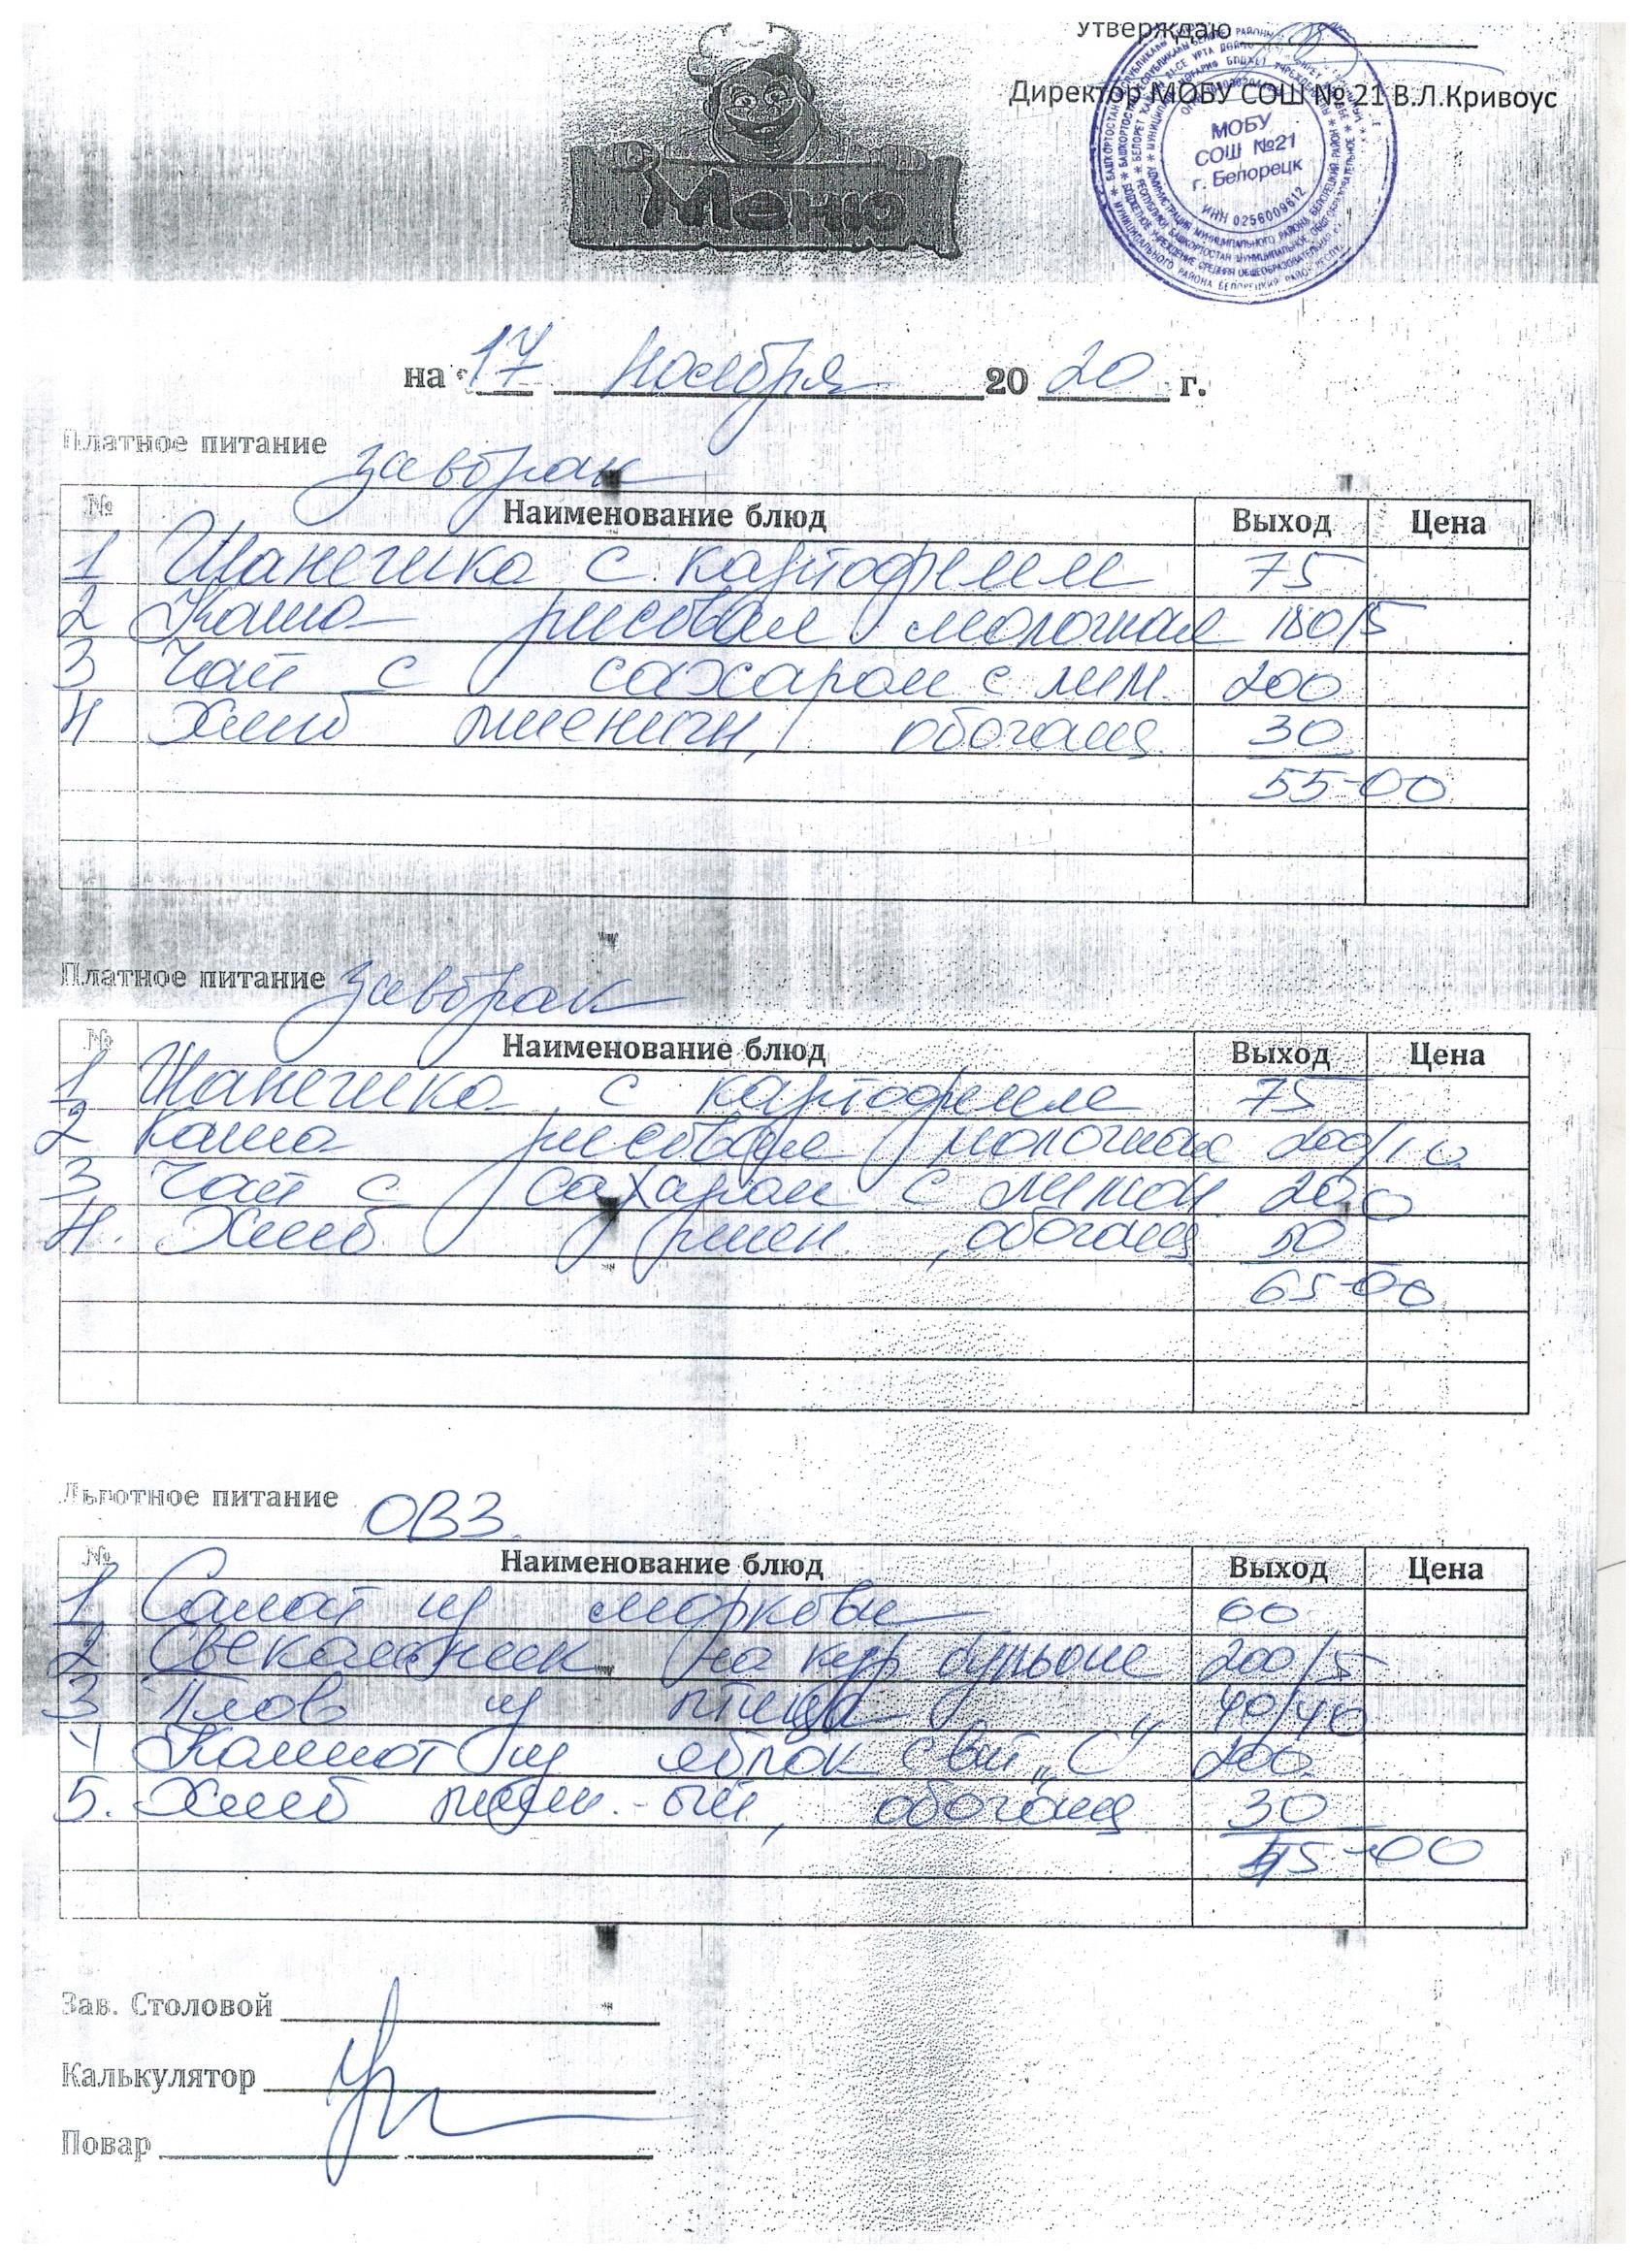 Утверждаю
Директор МОБУ СОШ № 21 В.Л.Кривоус
МОБУ
СОШ №21
г. Белорецк
ИНН 0256009612
Меню
на 17 ноября 2020 г.
Платное питание завтрак
№ Наименование блюд Выход Цена
1 Шанежка с картофелем 75
2 Каша рисовая молочная 180/5
3 Чай с сахаром с лим. 200
4 Хлеб пшеничн, обогащ. 30
55-00
Платное питание завтрак
№ Наименование блюд Выход Цена
1 Шанежка с картофелем 75
2 Каша рисовая молочная 200/10
3. Чай с сахаром с лимон. 200
4. Хлеб пшен. , обогащ 50
65-00
Льготное питание ОВЗ
№ Наименование блюд Выход Цена
1. Салат из моркови 60
2 Свекольник на кур бульоне 200/5
3 Плов из птицы 40/40
4 Компот из яблок св „С" 200
5. Хлеб пшен.-ый, обогащ 30
45-00
Зав. Столовой
Калькулятор
Повар